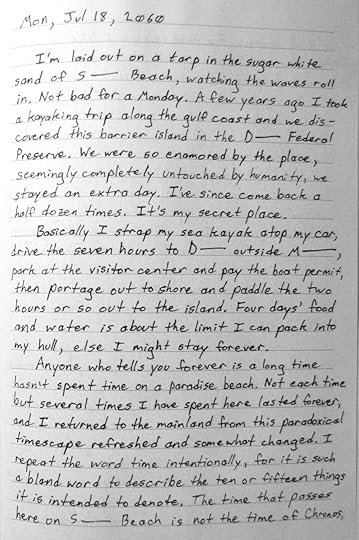 Mon, Jul 18, 2060
I'm laid out on a tarp in the sugar white
sand of S— Beach, watching the waves roll
in. Not bad for a Monday. A few years ago I took
a kayaking trip along the gulf coast and we dis-
covered this barrier island in the D— Federal
Preserve. We were so enamored by the place,
seemingly completely untouched by humanity, we
stayed an extra day. I've since come back a
half dozen times. It's my secret place.
Basically I strap my sea kayak atop my car,
drive the seven hours to D— outside M—,
park at the visitor center and pay the boat permit,
then portage out to shore and paddle the two
hours or so out to the island. Four days' food
and water is about the limit I can pack into
my hull, else I might stay forever.
Anyone who tells you forever is a long time
hasn't spent time on a paradise beach. Not each time
but several times I have spent here lasted forever,
and I returned to the mainland from this paradoxical
timescape refreshed and somewhat changed. I
repeat the word time intentionally, for it is such
a bland word to describe the ten or fifteen things
it is intended to denote. The time that passes
here on S— Beach is not the time of Chronos,